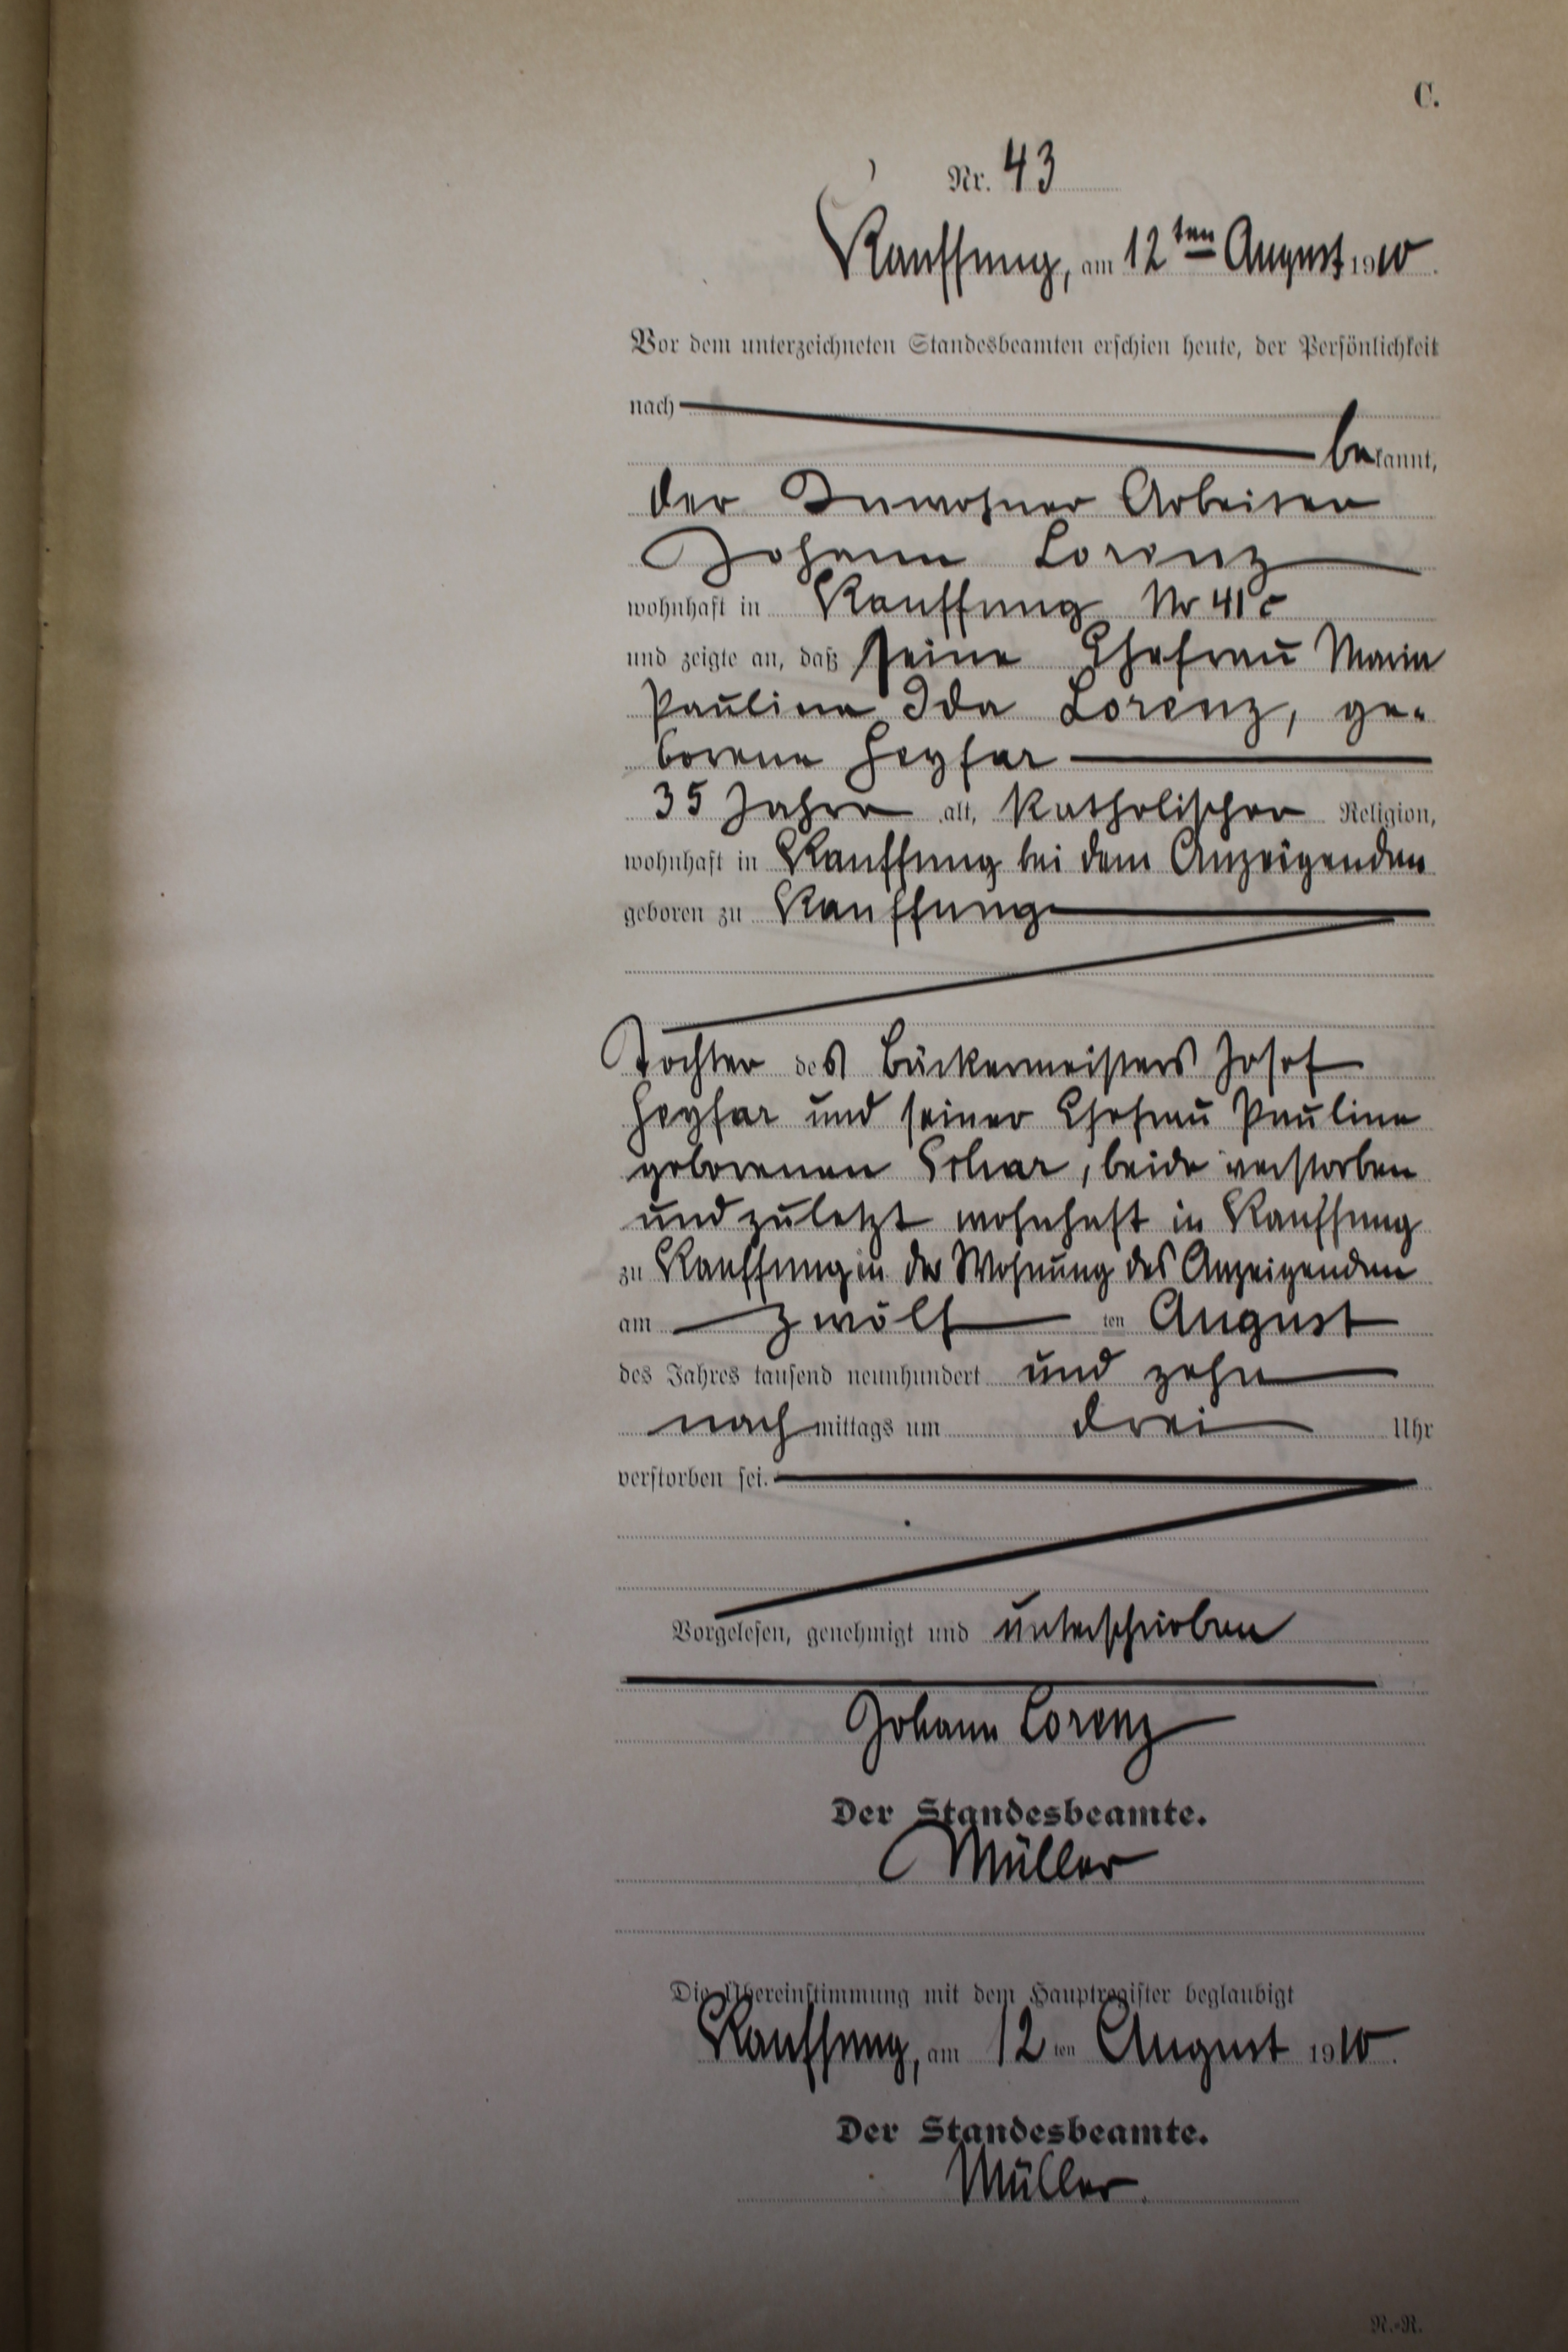 C.
Nr. 43
Kauffung, am 12ten August 1910.
Vor dem unterzeichneten Standesbeamten erschien heute, der Persönlichkeit
nach
bekannt,
der Inwohner Arbeiter
Johann Lorenz
wohnhaft in Kauffung Nr 41c
und zeigte an, daß seine Ehefrau Maria
Pauline Ida Lorenz, ge-
borene
35 Jahre alt, katholischer Religion,
wohnhaft in Kauffung bei dem Anzeigenden
geboren zu Kauffung
Tochter des Bäckermeisters Josef
und seiner Ehefrau Pauline
geborenen, beide verstorben
und zuletzt wohnhaft in Kauffung
zu Kauffung in der Wohnung des Anzeigenden
am zwölf ten August
des Jahres tausend neunhundert und zehn
nachmittags um drei Uhr
verstorben sei.
Vorgelesen, genehmigt und unterschrieben
Johann Lorenz
Der Standesbeamte.
Müller
Die Übereinstimmung mit dem Hauptregister beglaubigt
Kauffung, am 12 ten August 1910.
Der Standesbeamte.
Müller.
R.-R.